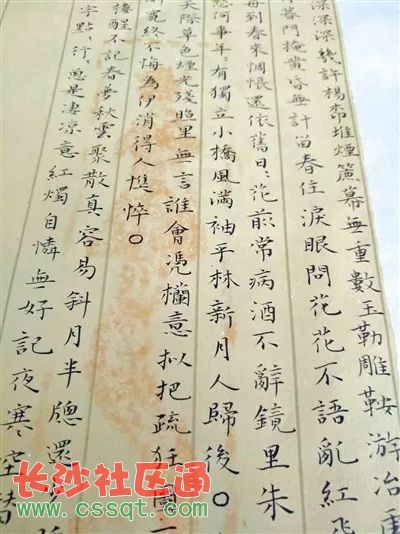 深深深幾許楊柳堆煙簾幕無重數玉勒雕鞍游冶
暮門掩黃昏無計留春住淚眼問花花不語亂紅飛
每到春來惆悵還依舊日:花前常病酒不辭鏡里朱
何事年:有獨立小橋風滿袖平林新月人歸後。
天際草色煙光殘照里無言誰會憑欄意拟把疏狂圖一
漸寬終不悔為伊消得人憔悴。
樓醒不記春夢秋雲聚散真容易斜月半牕還
字點:行:總是凄涼意紅燭自憐無好記夜寒空替
长沙社区通
www.cssqt.com